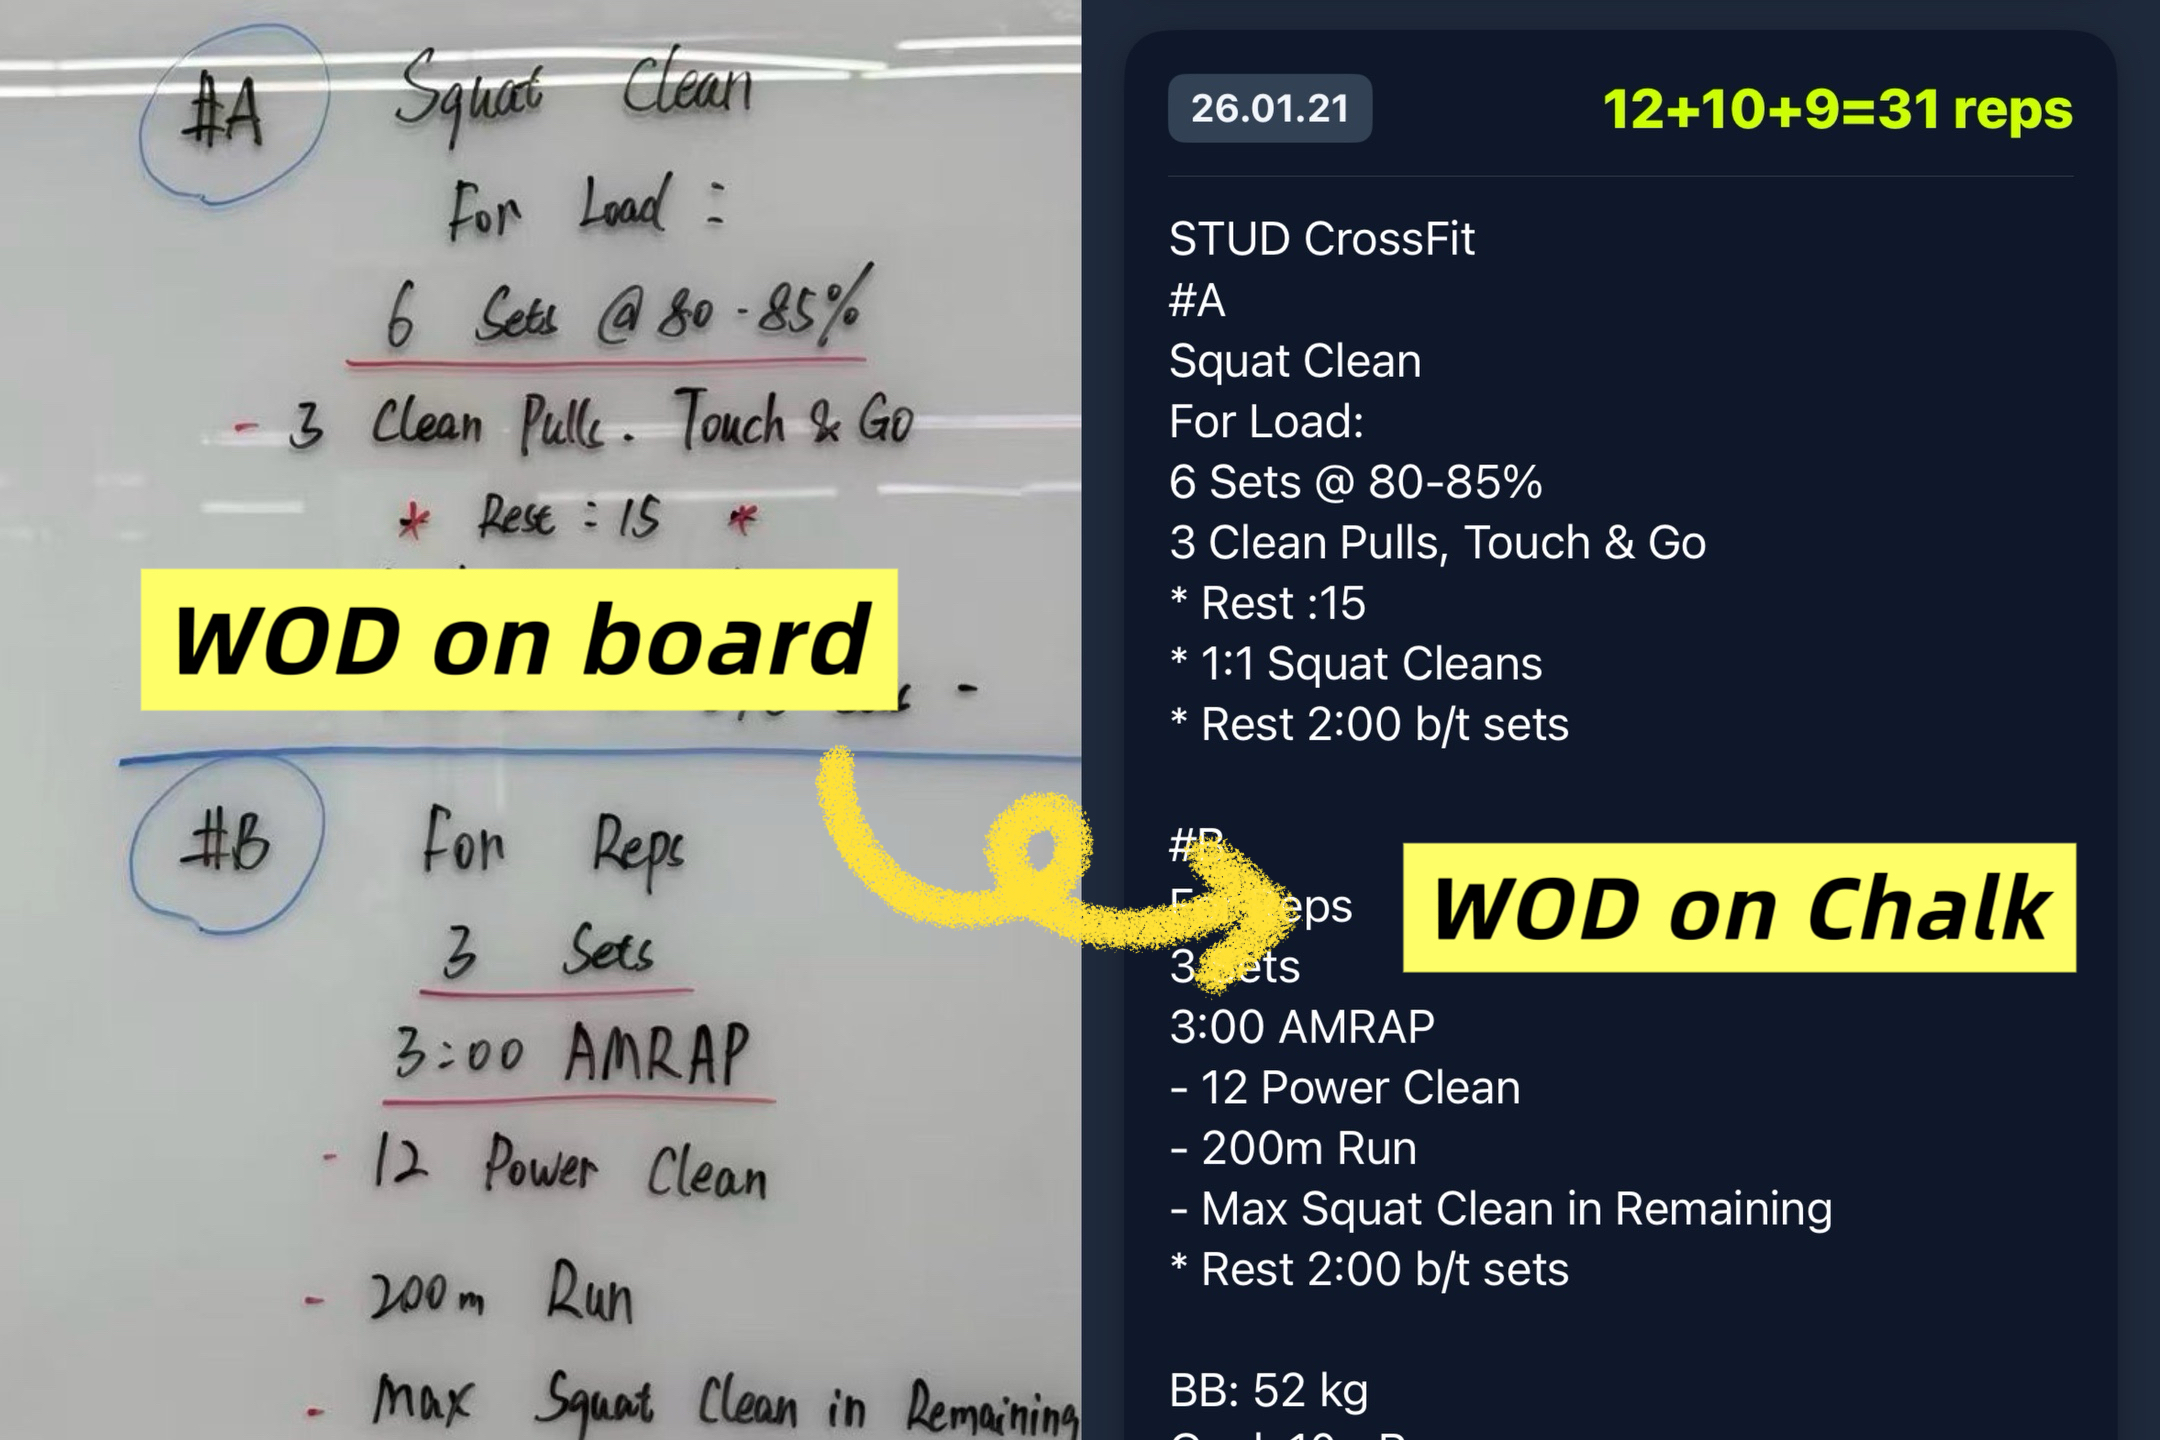 #A Squat Clean
For Load :
6 Sets @ 80-85%
- 3 Clean Pulls. Touch & Go
* Rest :15 *
WOD on board
#B For Reps
3 Sets
3:00 AMRAP
- 12 Power Clean
- 200m Run
- Max Squat Clean in Remaining
26.01.21
12+10+9=31 reps
STUD CrossFit
#A
Squat Clean
For Load:
6 Sets @ 80-85%
3 Clean Pulls, Touch & Go
* Rest :15
* 1:1 Squat Cleans
* Rest 2:00 b/t sets
#B
For Reps
WOD on Chalk
3 Sets
3:00 AMRAP
- 12 Power Clean
- 200m Run
- Max Squat Clean in Remaining
* Rest 2:00 b/t sets
BB: 52 kg